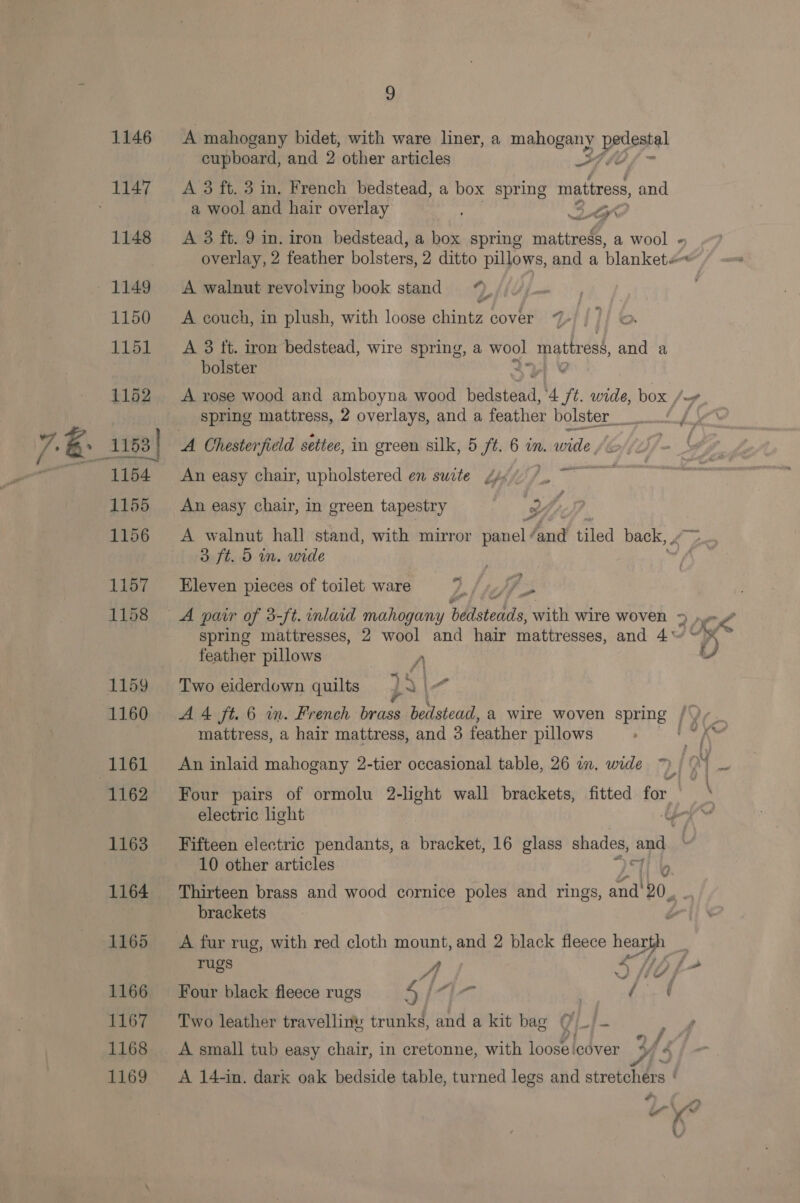 9
1146 A mahogany bidet, with ware liner, a mahogany pedestal
cupboard, and 2 other articles
1147 A 3 ft. 3 in. French bedstead, a box spring mattress, and
a wool and hair overlay
1148 A 3 ft. 9 in. iron bedstead, a box spring mattress, a wool
overlay, 2 feather bolsters, 2 ditto pillows, and a blanket
1149 A walnut revolving book stand
1150 A couch, in plush, with loose chintz cover
1151 A 3 ft. iron bedstead, wire spring, a wool mattress, and a
bolster
1152 A rose wood and amboyna wood bedstead, 4 ft. wide, box
spring mattress, 2 overlays, and a feather bolster
1153 A Chesterfield settee, in green silk, 5 ft. 6 in. wide
1154 An easy chair, upholstered en suite
1155 An easy chair, in green tapestry
1156 A walnut hall stand, with mirror panel and tiled back,
3 ft. 5 in. wide
1157 Eleven pieces of toilet ware
1158 A pair of 3-ft. inlaid mahogany bedsteads, with wire woven
spring mattresses, 2 wool and hair mattresses, and 4
feather pillows
1159 Two eiderdown quilts
1160 A 4 ft. 6 in. French brass bedstead, a wire woven spring
mattress, a hair mattress, and 3 feather pillows
1161 An inlaid mahogany 2-tier occasional table, 26 in. wide
1162 Four pairs of ormolu 2-light wall brackets, fitted for
electric light
1163 Fifteen electric pendants, a bracket, 16 glass shades, and
10 other articles
1164 Thirteen brass and wood cornice poles and rings, and 20
brackets
1165 A fur rug, with red cloth mount, and 2 black fleece hearth
rugs
1166 Four black fleece rugs
1167 Two leather travelling trunks, and a kit bag
1168 A small tub easy chair, in cretonne, with loose cover
1169 A 14-in. dark oak bedside table, turned legs and stretchers